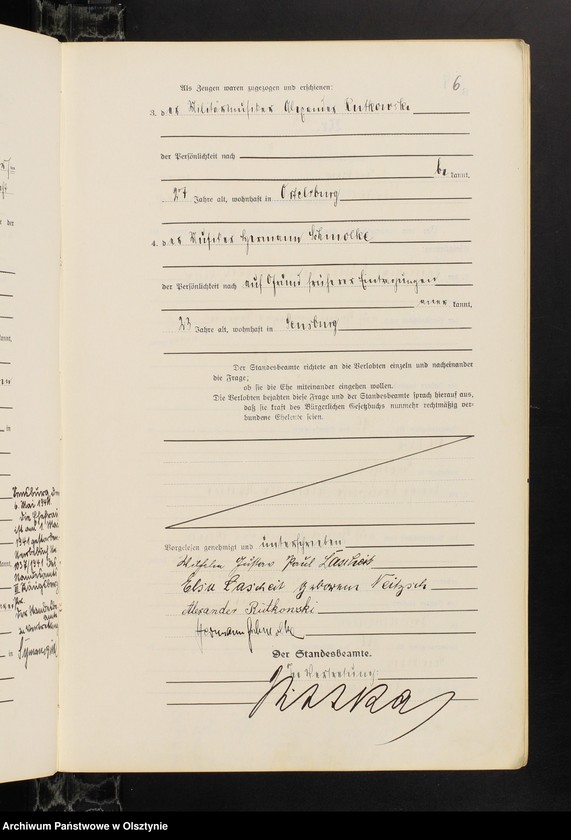 6
Als Zeugen waren zugezogen und erschienen:
3. der Militärmusiker Alexander Rutkowski
der Persönlichkeit nach
be kannt,
27 Jahre alt, wohnhaft in Ortelsburg
4. der Musiker Hermann Schmolke
der Persönlichkeit nach auf Grund früherer Eintragungen
aner kannt,
23 Jahre alt, wohnhaft in Sensburg
Der Standesbeamte richtete an die Verlobten einzeln und nacheinander
die Frage:
ob sie die Ehe miteinander eingehen wollen.
Die Verlobten bejahten diese Frage und der Standesbeamte sprach hierauf aus,
daß sie kraft des Bürgerlichen Gesetzbuchs nunmehr rechtmäßig ver-
bundene Eheleute seien.
Vorgelesen, genehmigt und unterschrieben
Wilhelm Gustav Paul Lascheit
Elsa Lascheit geborene Neitzsch
Alexander Rutkowski
Hermann Schmolke
Der Standesbeamte.
In Vertretung
Sensburg, den
6. Mai 1941
Die Ehefrau
ist am 1. Mai
1941 gestorben
Standesamt
II Königsberg
Pr.
Der Standesbeamte
In Vertretung
Szymanzik
Archiwum Państwowe w Olsztynie